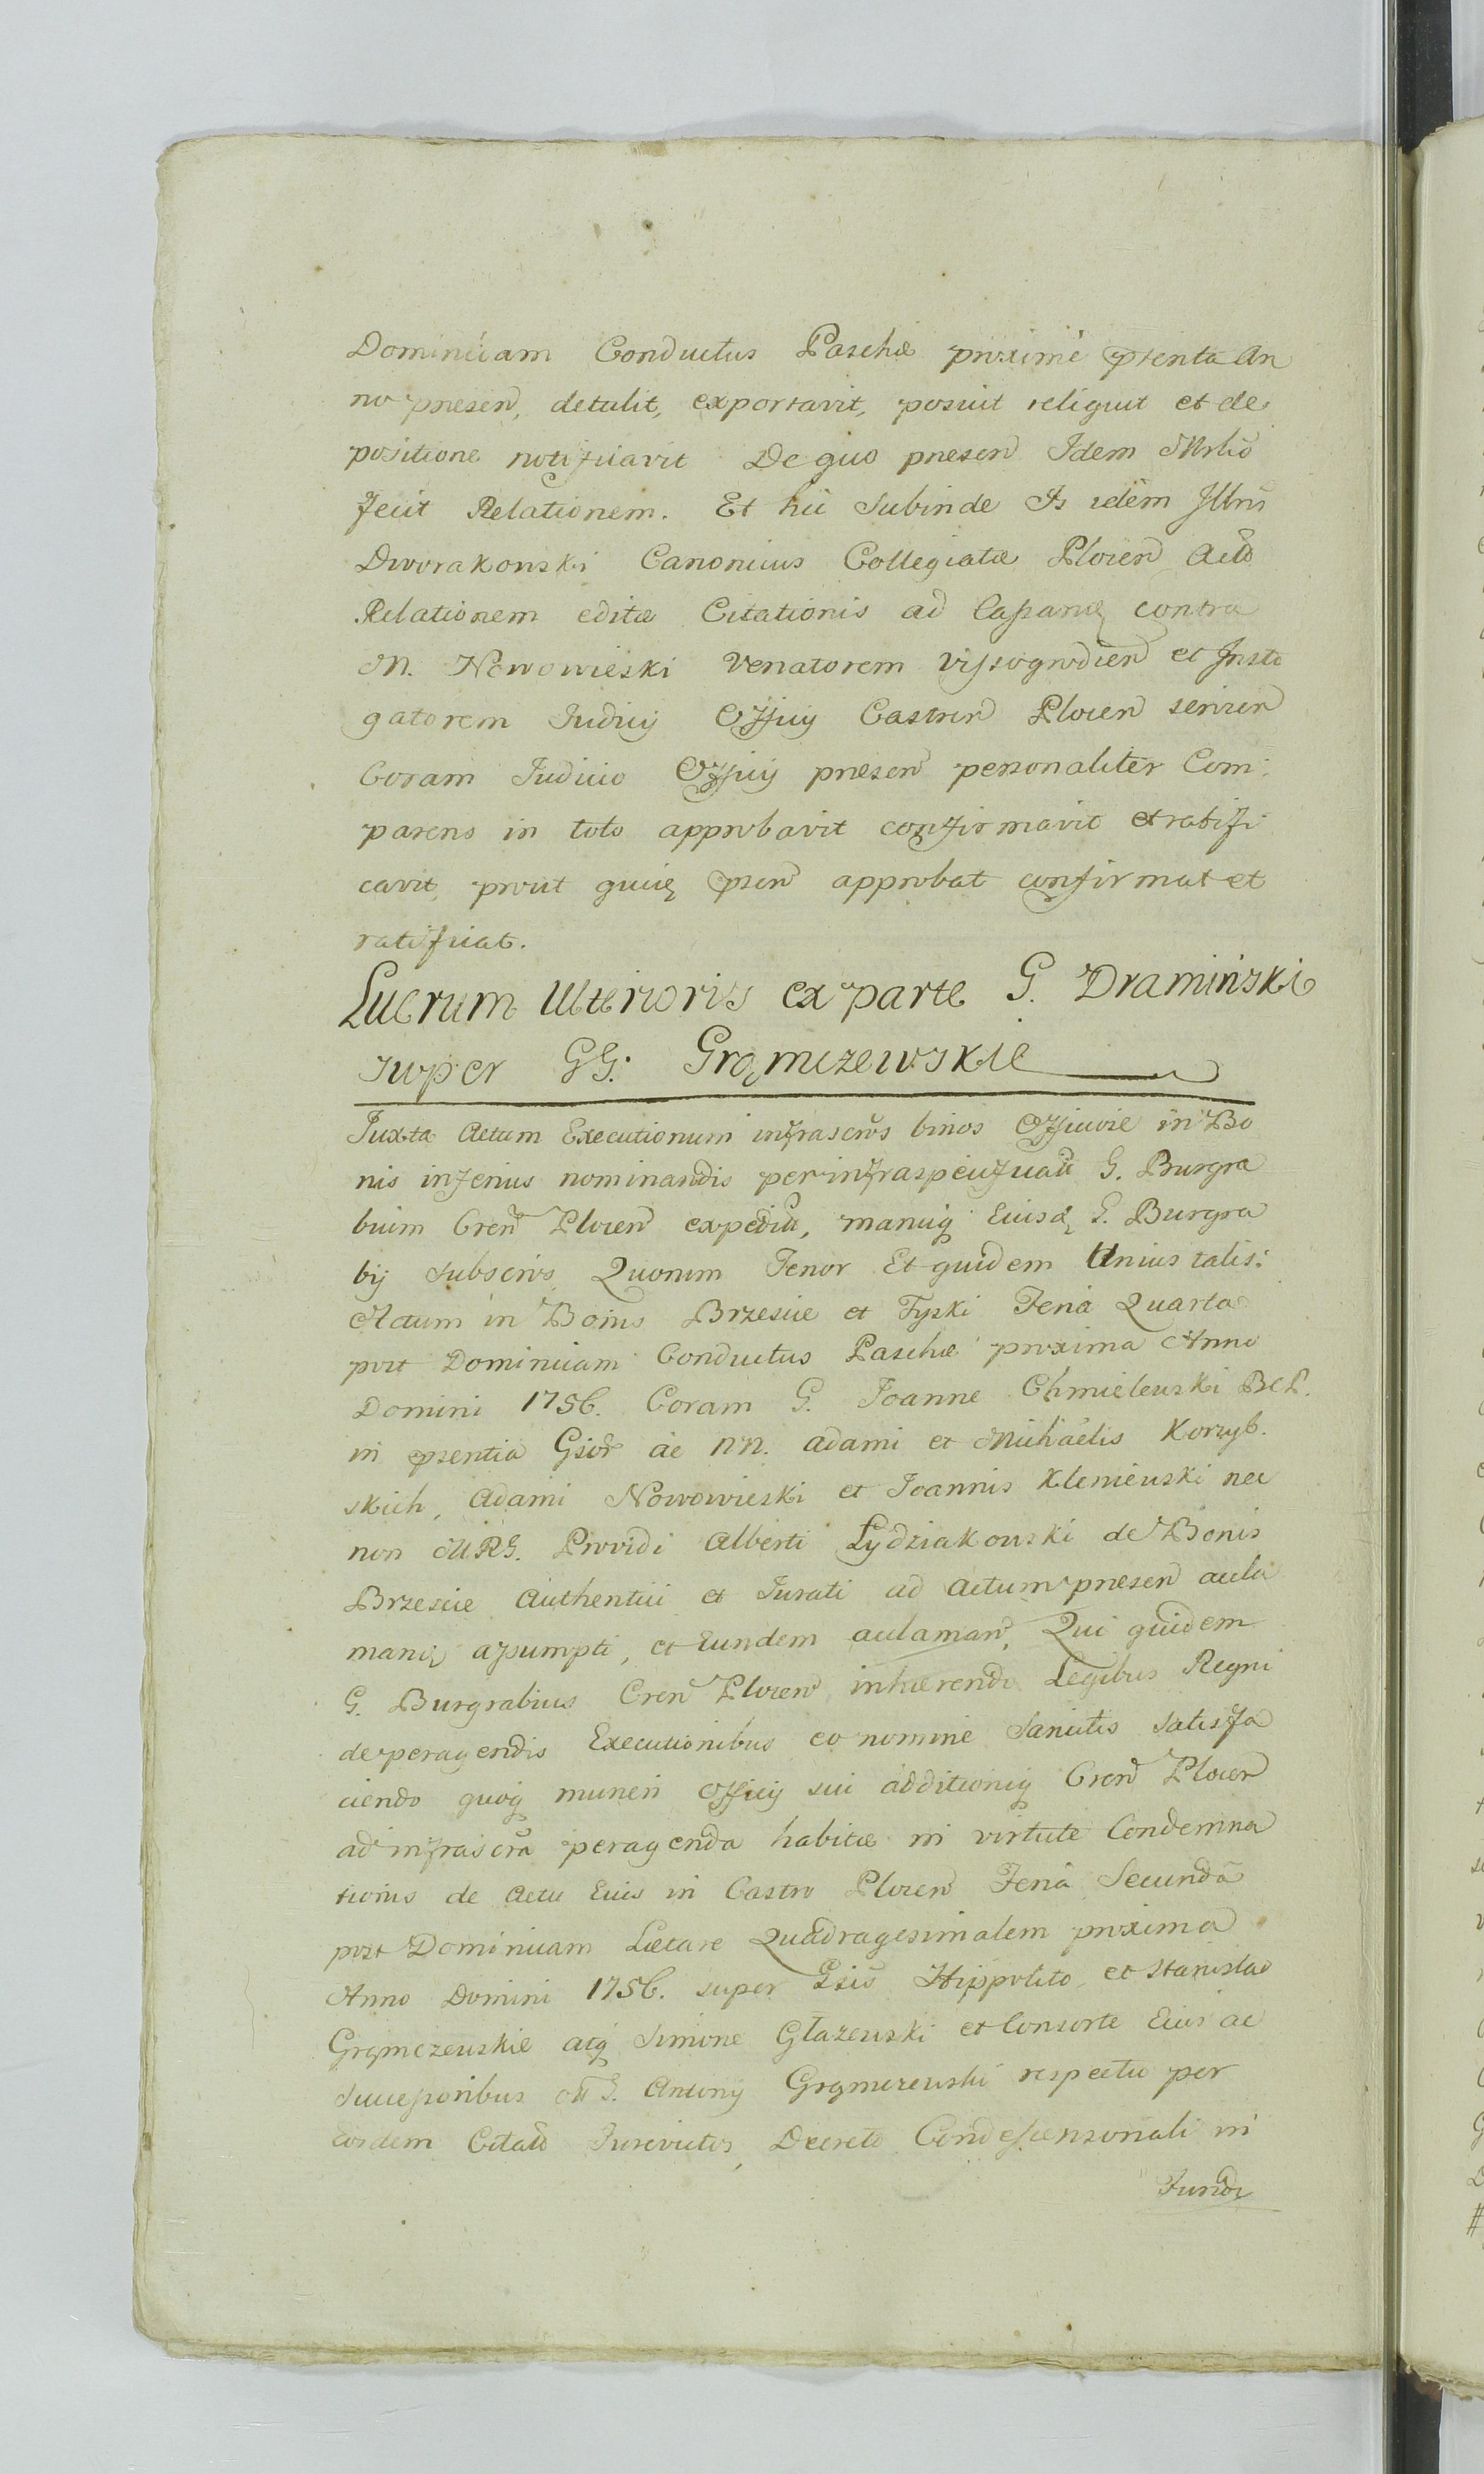 Dominicam Conductus Paschæ proxime præterita An
no præsen, detulit, exportavit, posuit reliquit et de
positione notificavit De quo præsen Idem Mrlis
fecit Relationem. Et hic Subinde Is idem Illris
Dworakowski Canonicus Collegiatæ Plocen Actō
Relationem editæ Citationis ad Cassanđ contra
M. Nowowieski Venatorem Vissogrodien et Insti
gatorem Judicij Officij Castren Plocen servien
Coram Judicio Officij præsen personaliter Com:
parens in toto approbavit confirmavit et ratifi
cavit, prout quidem præsen approbat confirmat et
ratificat.
Lucrum Ulterioris ex parte G. Dramiński
super GG. Grąmczewskie
Juxta Actum Executionum infrascrūs binos Officiose in Bo
nis inferius nominandis per infraspecificatū G. Burgra
bium Cren Plocen expeditū, manuq Eiusd G. Burgra
bij subscrūs Quorum Tenor Et quidem Unius talis:
Actum in Bonis Brzescie et Tyski Feria Quarta
post Dominicam Conductus Paschæ proxima Anno
Domini 1756. Coram G. Joanne Chmielewski B C P.
in præsentia Gsior ac NN. Adami et Michaelis Korzyb.
skich, Adami Nowowieski et Joannis Kleniewski nec
non M R G. Providi Alberti Łydziakowski de Bonis
Brzescie Authentici et Jurati ad Actum præsen acla
mand assumpti, et Eundem aclaman, Qui quidem
G. Burgrabius Cren Plocen inhærendo Legibus Regni
de peragendis Executionibus eo nomine Sancitis satisfa
ciendo quoq muneri Officij sui additioniq Cren Plocen
ad infrascrā peragenda habitæ ni virtute Condemna
tionis de Actu Eius in Castro Plocen Feria Secunda
post Dominicam Lætare Quadragesimalem proxima
Anno Domini 1756. super Gsis Hippolito et Stanislao
Grąmczewskie atq Simone Głazewski et Consorte Eius ac
Successoribus M G. Antonij Grąmczewski respectu per
Eosdem Citatō Jurevictos, Decreto Condescensionali ni
Fundi